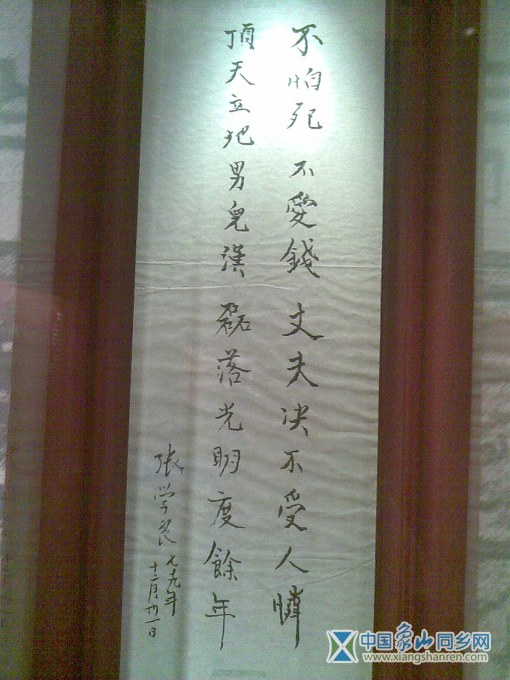 不怕死 不愛錢 丈夫决不受人憐
頂天立地男兒漢 磊落光明度餘年
張学良
七九年
十二月卅一日
中国象山同乡网
www.xiangshanren.com